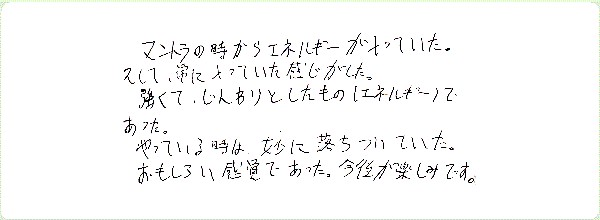 マントラの時からエネルギーが入っていた。
そして、常に入っていた感じがした。
強くて、じんわりとしたもの(エネルギー)で
あった。
やっている時は、妙に落ちついていた。
おもしろい感覚であった。今後が楽しみです。